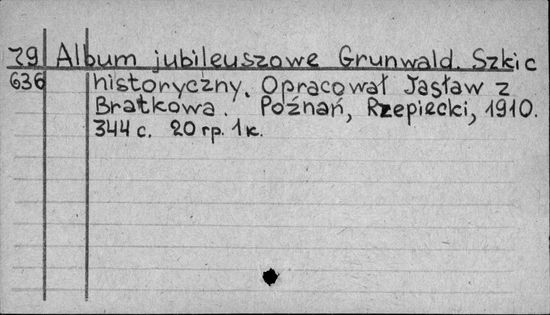 79 Album jubileuszowe Grunwald. Szkic
636 historyczny. Opracował Jasław z
Bratkowa. Poźnań, Rzepiecki, 1910.
344 c. 20 гр. 1 к.